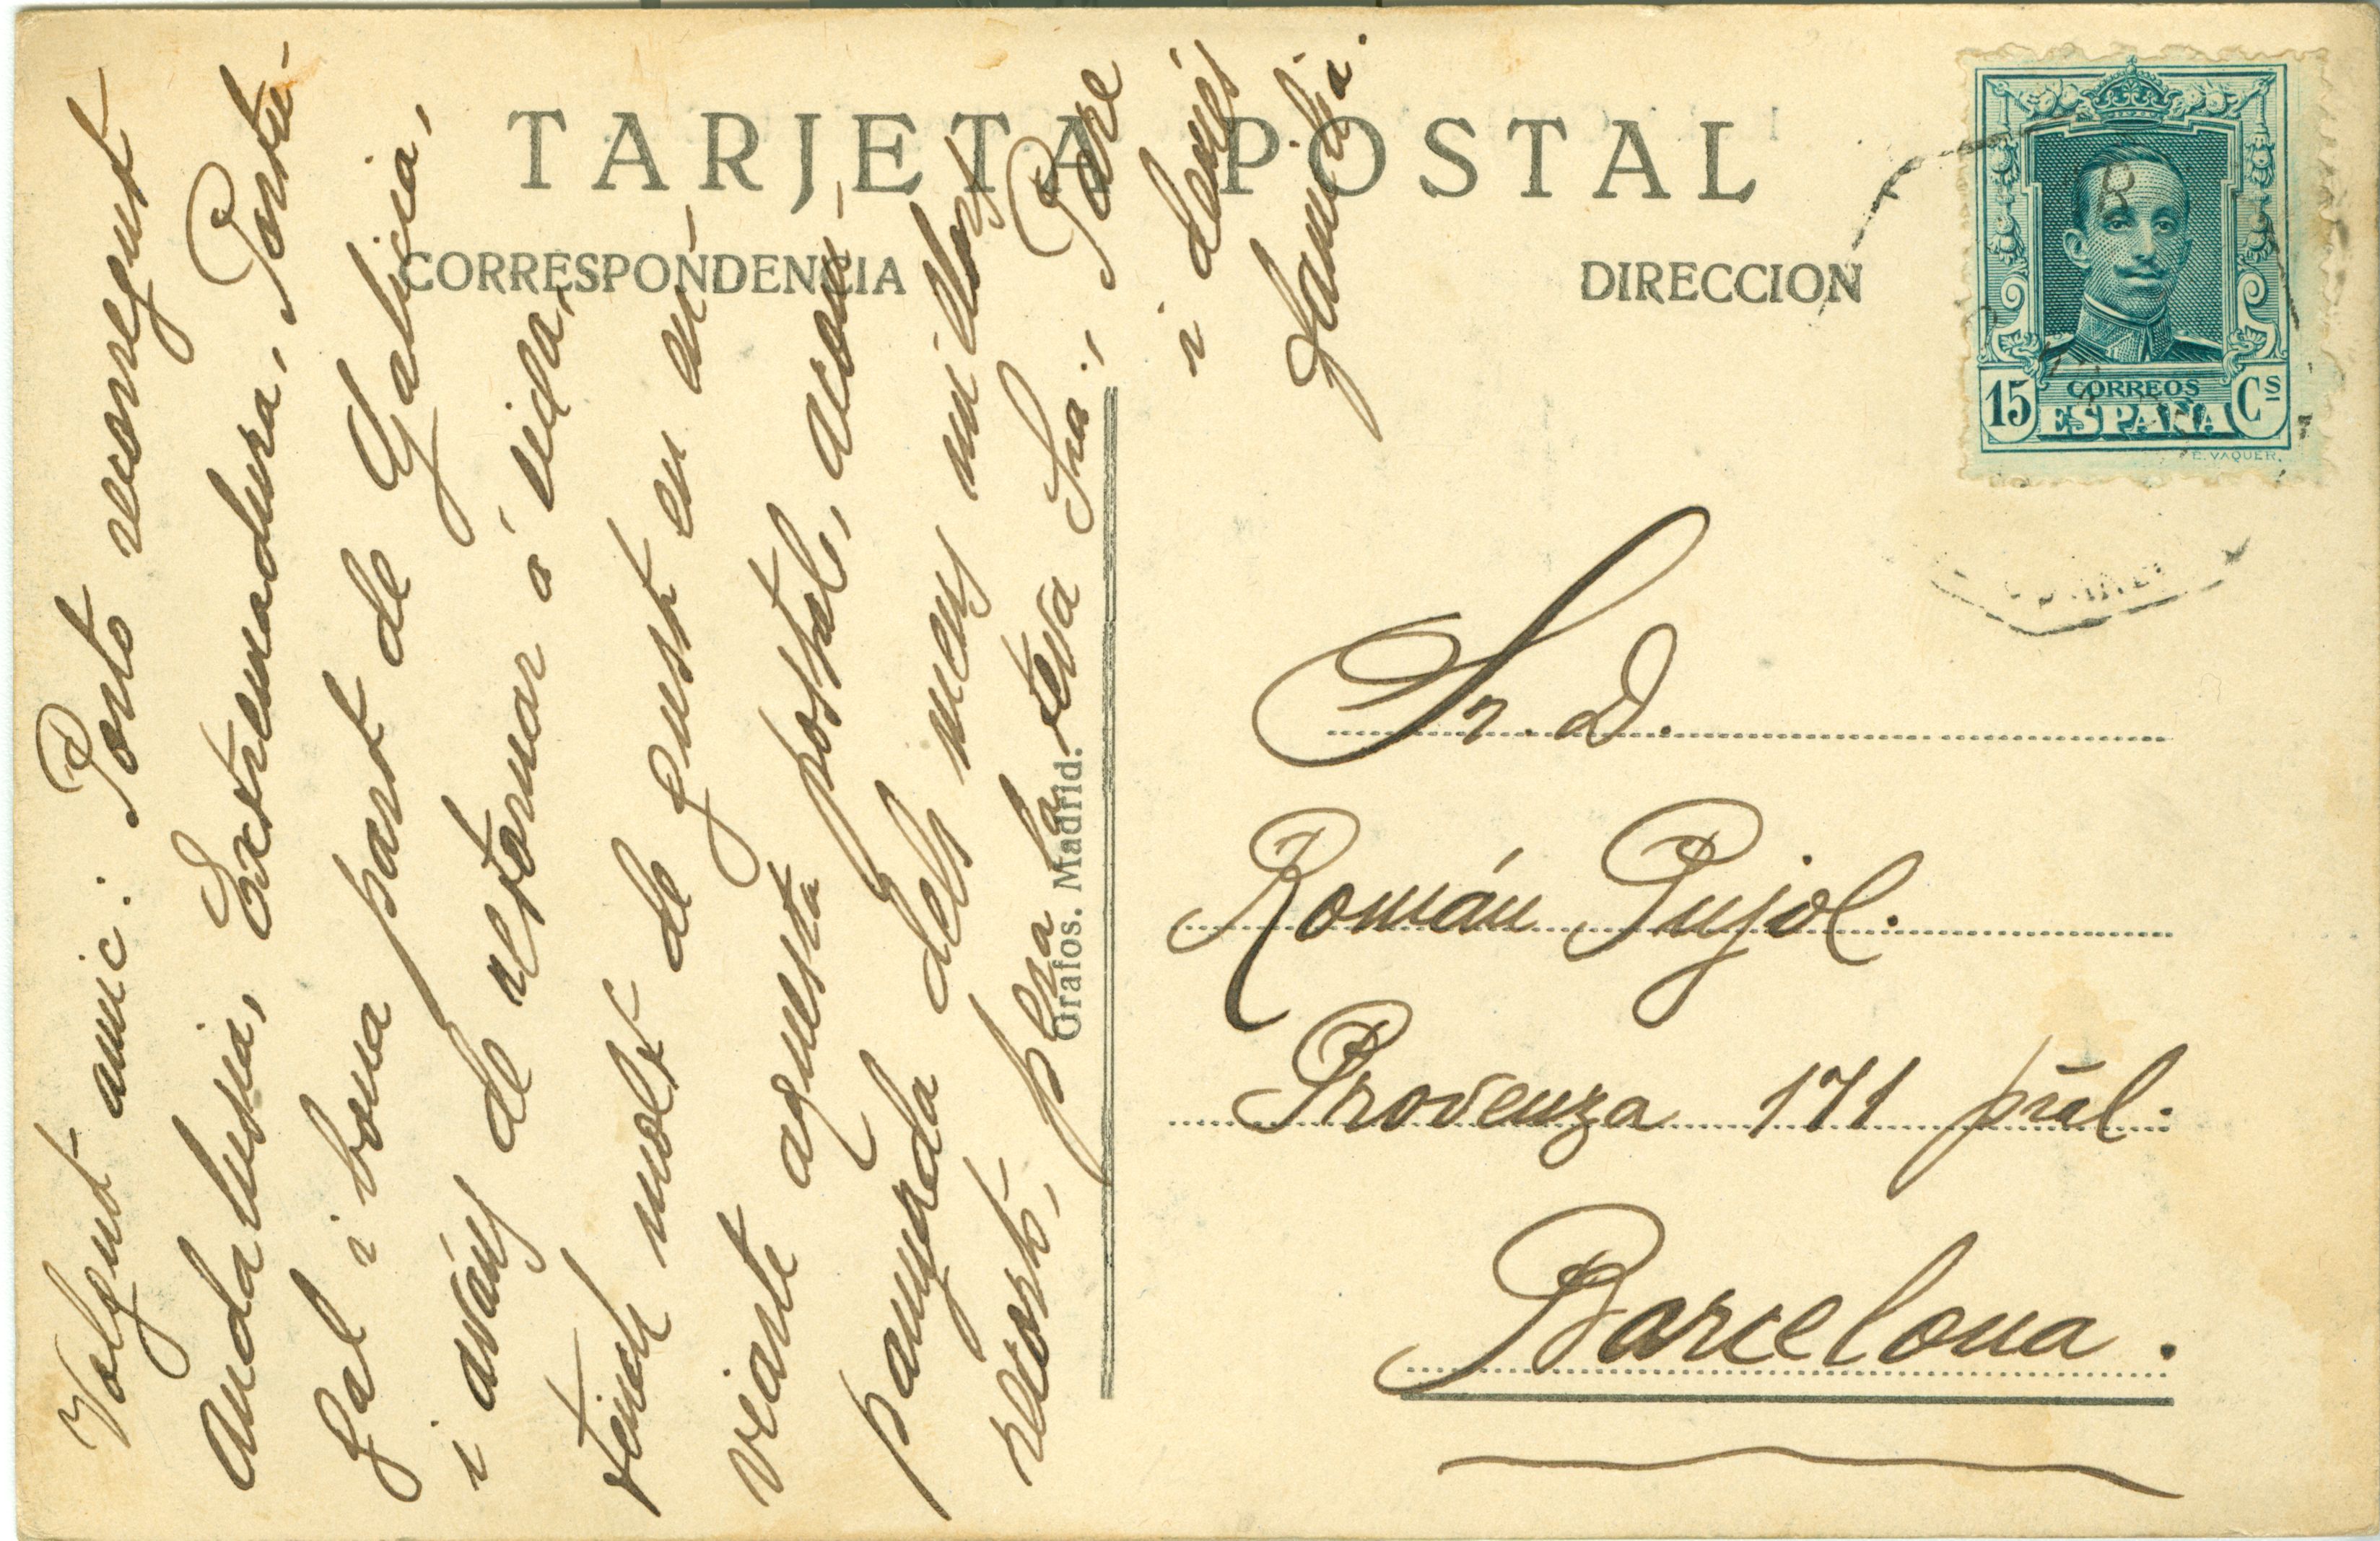 TARJETA POSTAL
CORRESPONDENCIA
DIRECCION
Volgut amic: Porto recorregut
Andalusia, Extremadura, Portu-
gal i bona part de Galicia,
i aváns de retornar á vida,
tinch molt de gust en en-
viarte aquesta postal, acom-
panyada dels meus millors
recorts, pera la teva Sra., Pare
i demés
familia.
Grafos. Madrid.
15 CORREOS Cs
ESPAÑA
E. VAQUER.
Sr. D.
Román Pujol.
Provenza 171 pral.
Barcelona.